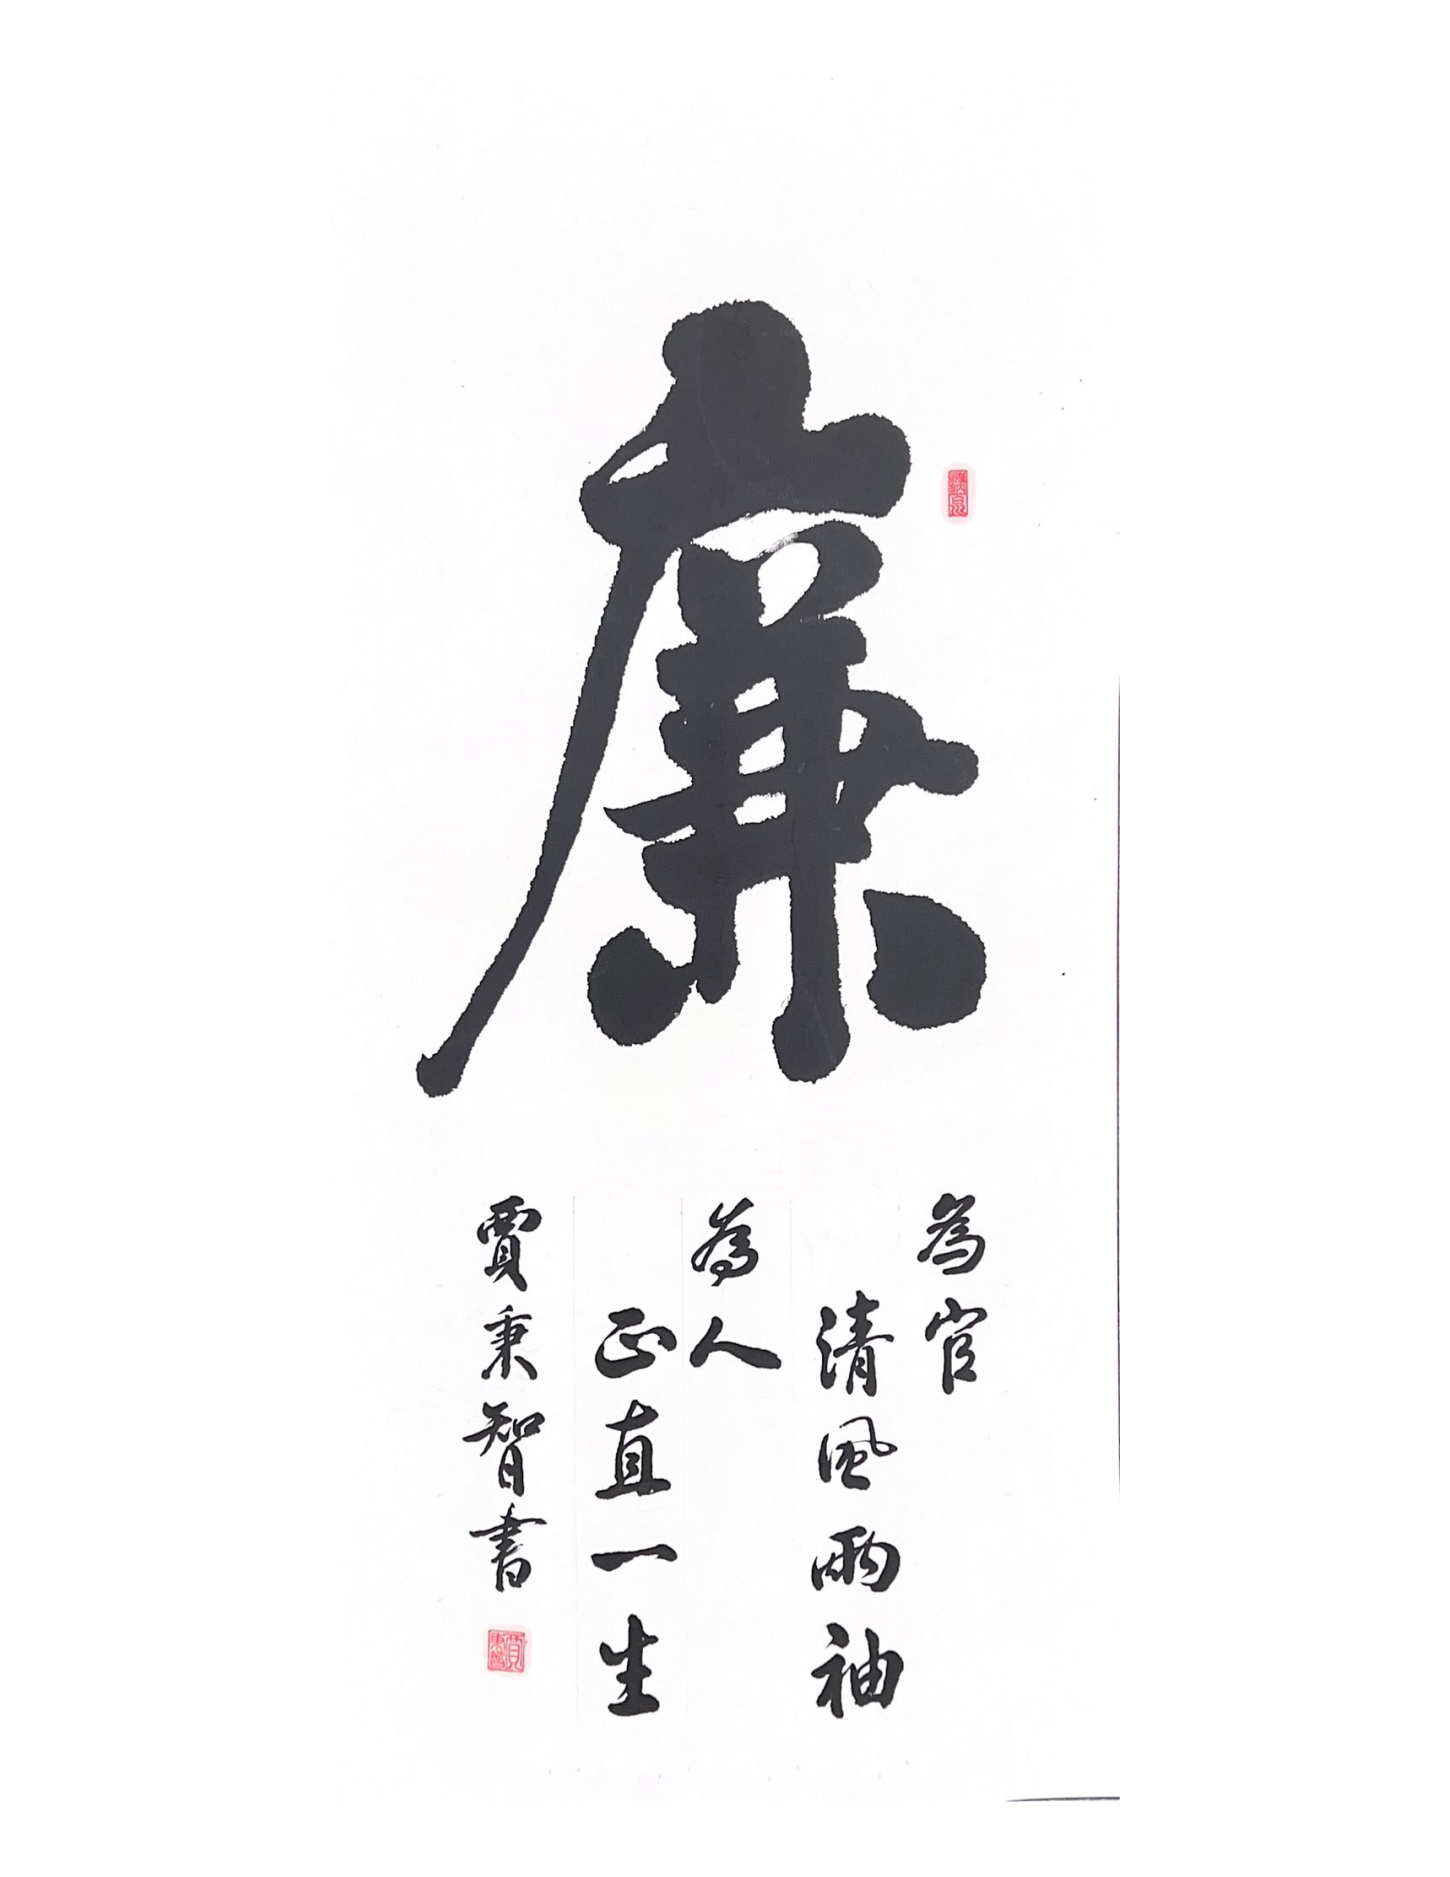 廉
為官
清風兩袖
為人
正直一生
賈秉智書